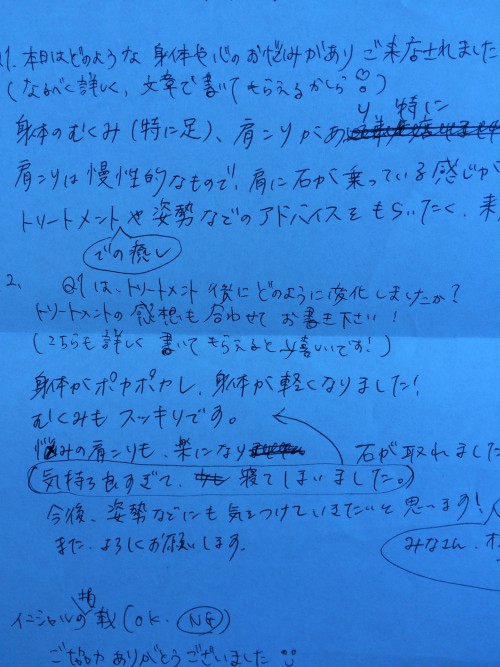 1. 本日はどのような 身体や心のお悩みがあり ご来店されました
(なるべく詳しく、文章で書いてもらえるかしら)
り 特に
身体のむくみ(特に足)、肩こりがあ
肩こりは慢性的なもので、肩に石が乗っている感じが
トリートメントや姿勢などのアドバイスをもらいたく、来
での癒し
2. Q1は、トリートメント後にどのように変化しましたか?
トリートメントの感想も合わせてお書き下さい!
(こちらも詳しく書いてもらえると嬉しいです!)
身体がポカポカし、身体が軽くなりました!
むくみもスッキりです。
悩みの肩こりも、楽になり 石が取れました
気持ち良すぎて、寝てしまいました。
今後、姿勢などにも気をつけていきたいと思います!
また、よろしくお願いします。
みなさん、
イニシャルの掲載(OK. NG)
ご協力ありがとうございました